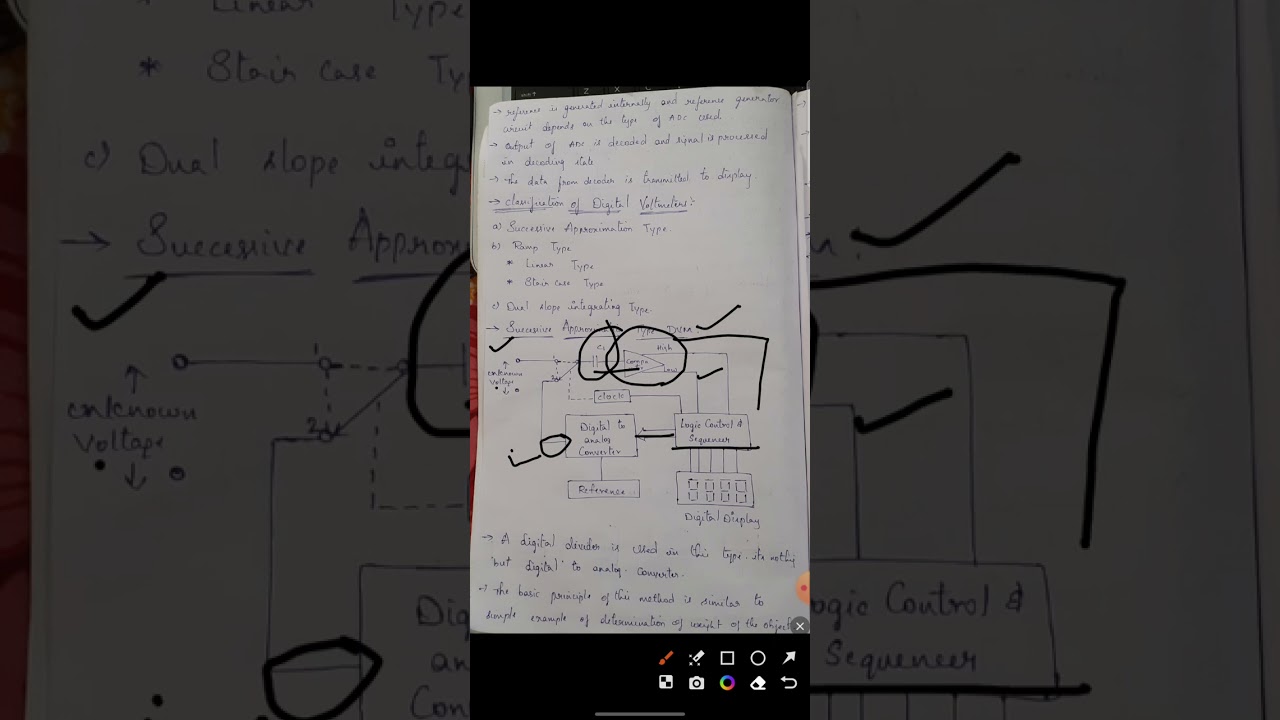 → reference is generated internally and reference generator
circuit depends on the type of ADC used.
→ output of ADC is decoded and signal is processed
in decoding state
→ The data from decoder is transmitted to display.
→ Classification of Digital Voltmeters:-
a) Successive Approximation Type.
b) Ramp Type
* Linear Type
* Stair case Type
c) Dual slope integrating Type.
→ Successive Type DVM.
C1
High
unknown
voltage
2
Low
clock
Digital to
analog
Converter
Logic Control &
Sequencer
Reference
8888
Digital Display
→ A digital divider is used in this type. its nothing
but digital to analog converter.
→ The basic principle of this method is similar to
simple example of determination of weight of the object
Linear Type
* Stair case Ty
c) Dual slope integ
→ Successive Approx
unknown
voltage
2
Dig
an
Con
Logic Control &
Sequencer